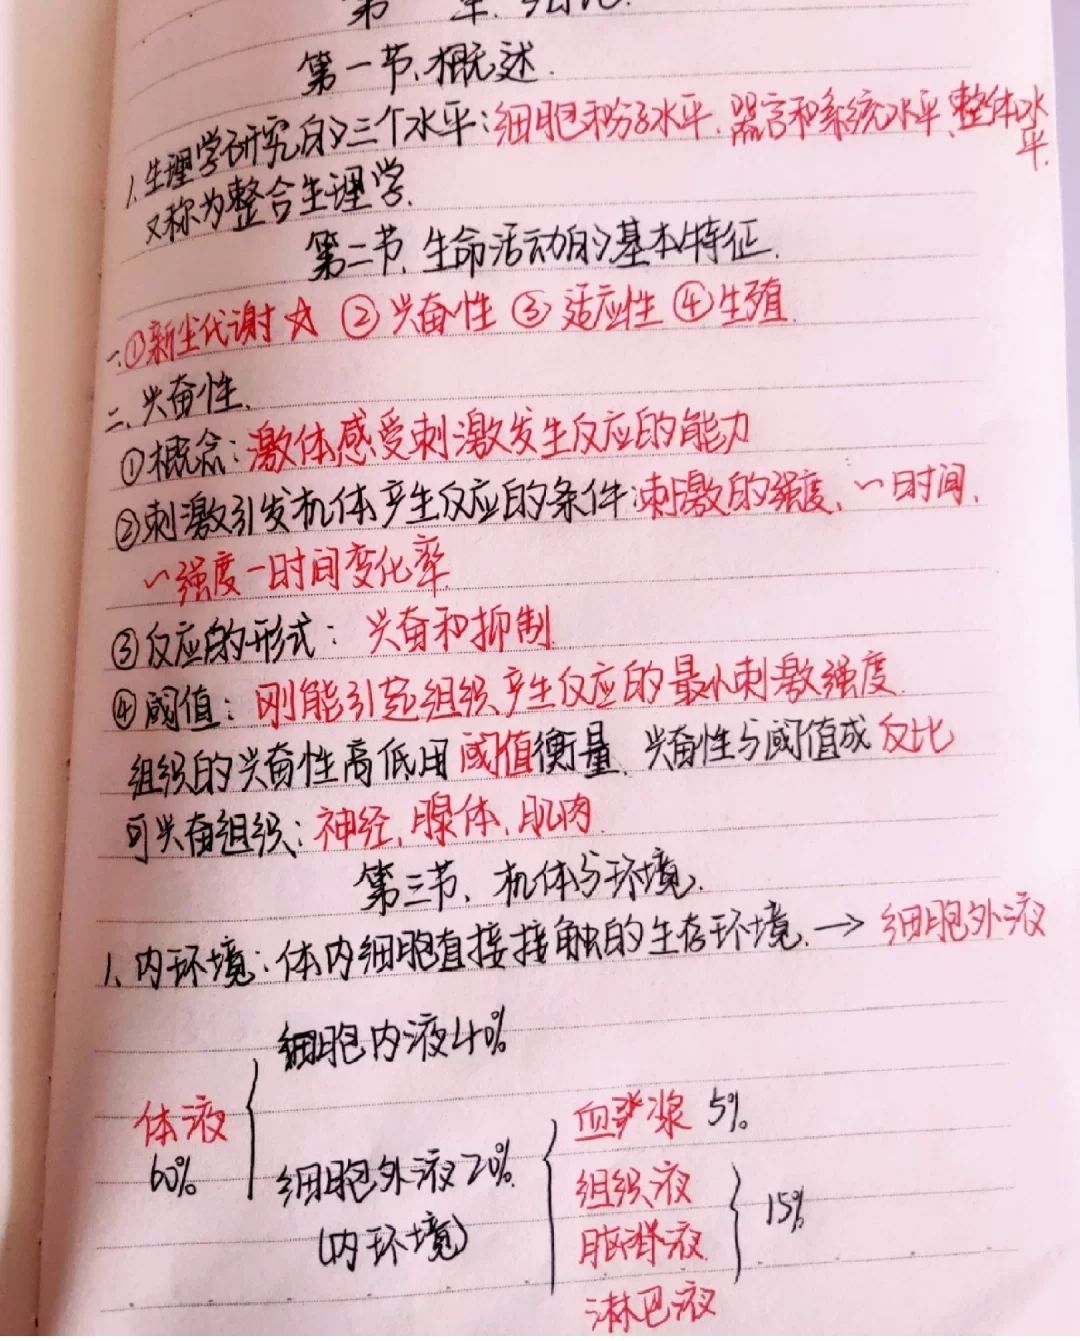 第一章、绪论.
第一节、概述.
1、生理学研究的三个水平:细胞和分子水平、器官和系统水平、整体水
平.
又称为整合生理学.
第二节、生命活动的基本特征.
一、①新尘代谢☆ ②兴奋性 ③适应性 ④生殖
二、兴奋性.
①概念:激体感受刺激发生反应的能力
②刺激引发机体产生反应的条件:刺激的强度、~时间、
~强度-时间变化率
③反应的形式: 兴奋和抑制
④阈值: 刚能引起组织产生反应的最小刺激强度
组织的兴奋性高低用阈值衡量、兴奋性与阈值成反比
可兴奋组织:神经、腺体、肌肉
第三节、机体与环境.
1、内环境:体内细胞直接接触的生存环境.→细胞外液
细胞内液40%
体液
60%
细胞外液20%
(内环境)
血浆 5%
组织液
脑脊液
15%
淋巴液